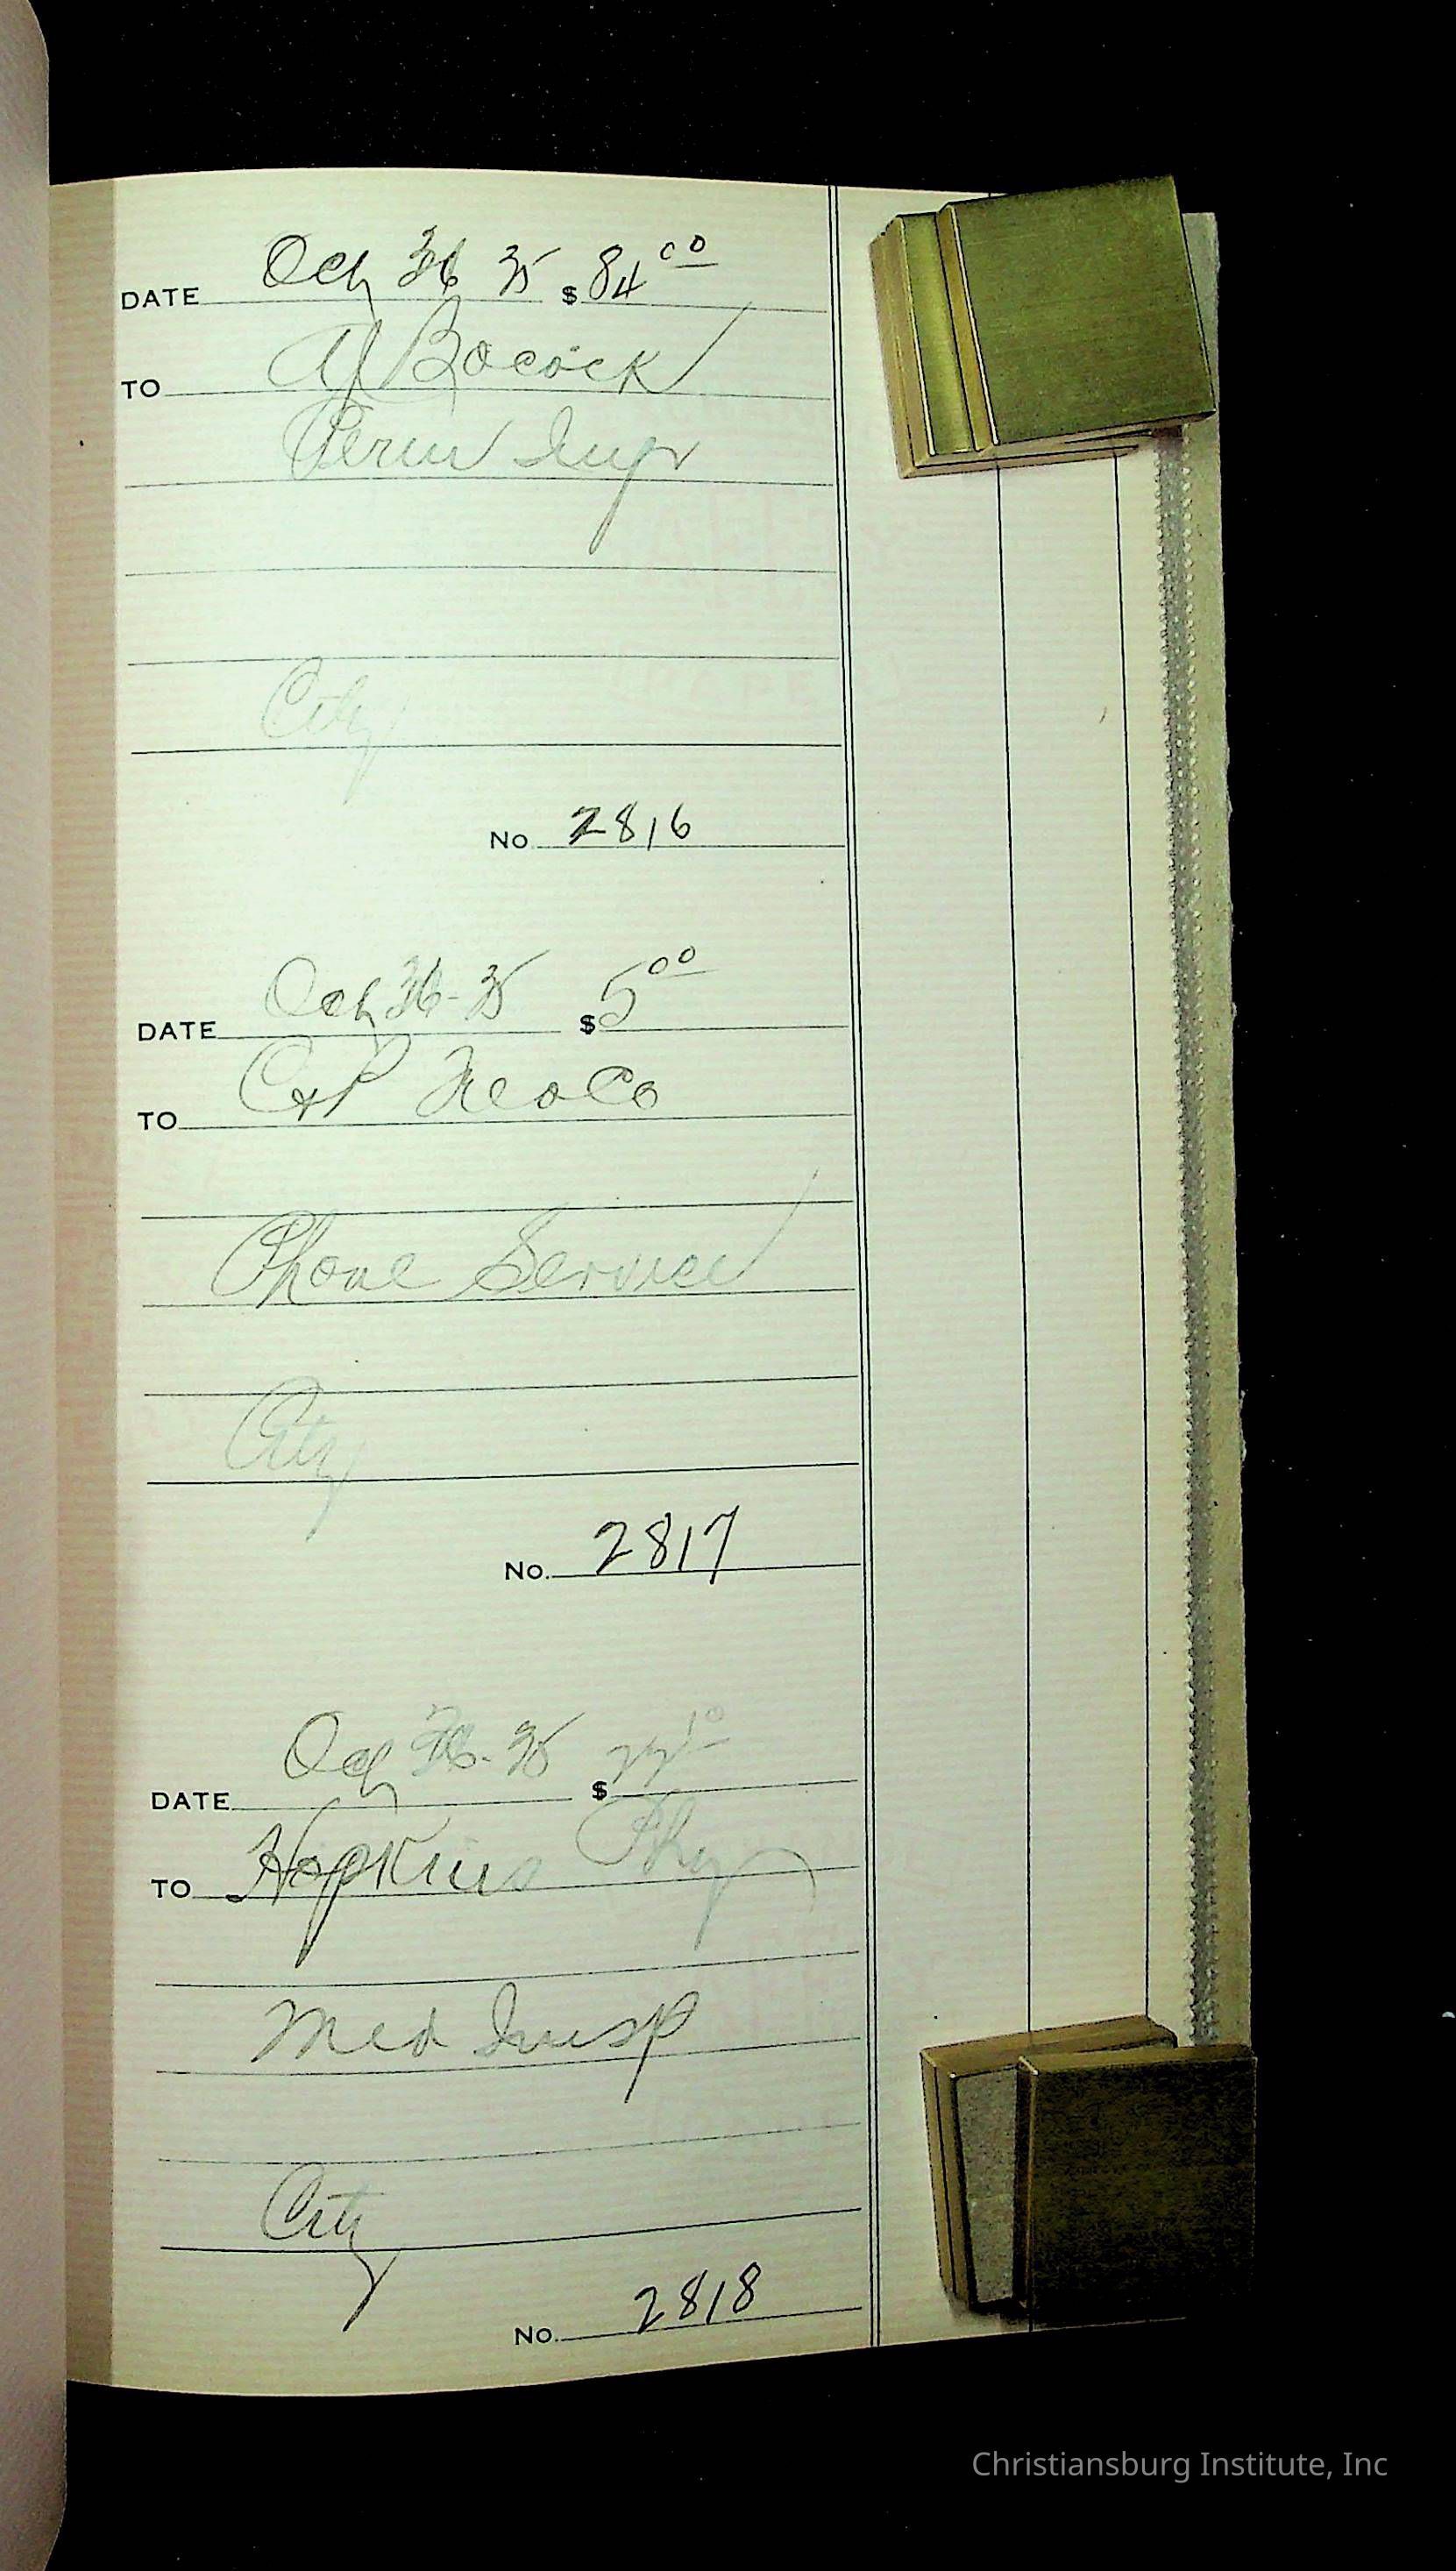 DATE Oct 26 35 $ 84 00
TO AJ Bocock
Perm Impr
City
No 2816
DATE Oct 26-35 $ 5 00
TO C&P Tel Co
Phone Service
City
No. 2817
DATE Oct 26-35 $
TO Hopkins Phy
Med Insp
City
No. 2818
Christiansburg Institute, Inc